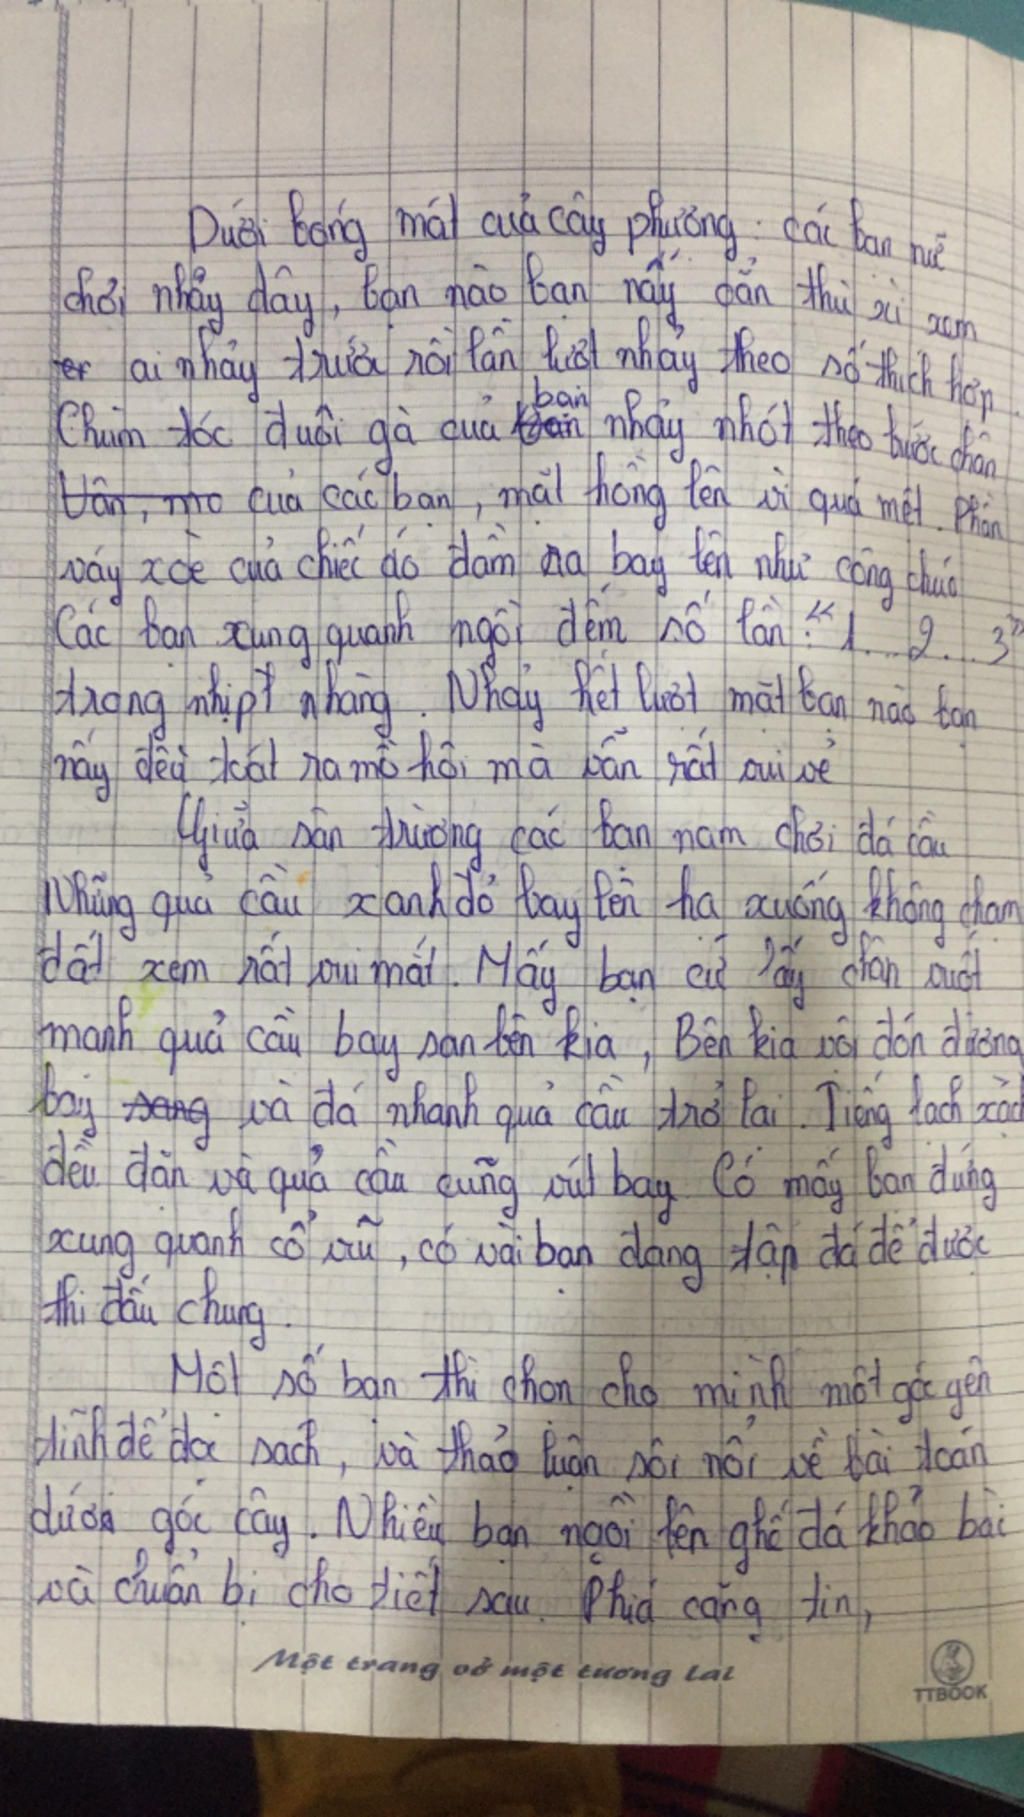 Dưới bóng mát của cây phượng. các bạn nữ
chơi nhảy dây, bạn nào bạn nấy oẳn thù xì xem
ai nhảy trước rồi lần lượt nhảy theo số thích hợp.
Chùm tóc đuôi gà của bạn nhảy nhót theo bước chân
của các bạn, mặt hồng lên vì quá mệt. Phần
váy xòe của chiếc áo đầm ra bay lên như công chúa
Các bạn xung quanh ngồi đếm số lần: "1....2....3"
trong nhịp nhàng. Nhảy hết lượt mặt bạn nào bạn
nấy đều toát ra mồ hôi mà vẫn rất vui vẻ
Giữa sân trường các bạn nam chơi đá cầu
Những quả cầu xanh đỏ bay lên hạ xuống không chạm
đất xem rất vui mắt. Mấy bạn cứ lấy chân suốt
mạnh quả cầu bay san bên kia, Bên kia vội đón đường
bay và đá nhanh quả cầu trở lại. Tiếng lách xách
đều đặn và quả cầu cũng vút bay. Có mấy bạn đứng
xung quanh cổ vũ, có vài bạn đang tập đá để được
thi đấu chung.
Một số bạn thì chọn cho mình một góc yên
tĩnh để đọc sách, và thảo luận sôi nổi về bài toán
dưới gốc cây. Nhiều bạn ngồi lên ghế đá khảo bài
và chuẩn bị cho tiết sau. Phía căng tin,
Một trang vở một tương lai
TTBOOK